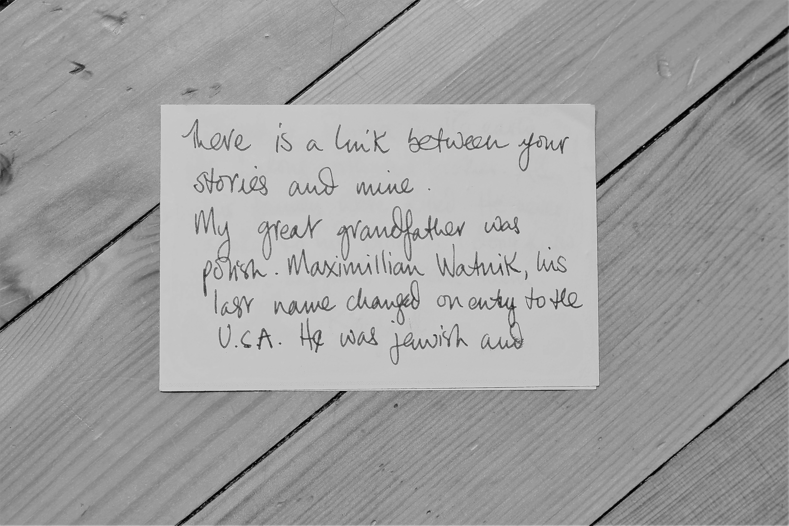 There is a link between your
stories and mine.
My great grandfather was
polish. Maximillian Watnik, his
last name changed on entry to the
U.S.A. He was jewish and